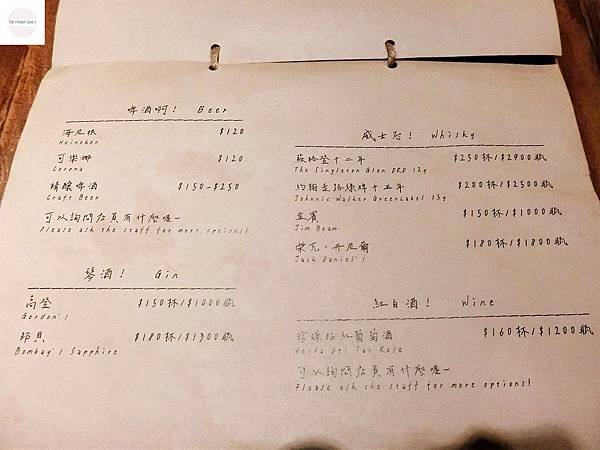 THE FUNDAY DAILY
啤酒啊! Beer
海尼根 $120
Heineken
可樂娜 $120
Corona
精釀啤酒 $150-$250
Craft Beer
可以詢問店員有什麼喔~
Please ask the staff for more options!
琴酒! Gin
高登 $150杯/$1000瓶
Gordon's
邦貝 $180杯/$1300瓶
Bombay's Sapphire
威士忌! Whisky
蘇格登十二年 $250杯/$2900瓶
The Singleton Glen ORD 12y
約翰走路綠牌十五年 $200杯/$2500瓶
Johnnie Walker GreenLabel 15y
金賓 $150杯/$1000瓶
Jim Beam
傑克·丹尼爾 $180杯/$1800瓶
Jack Daniel's
紅白酒! Wine
紅葡萄酒 $160杯/$1200瓶
Del Rose
可以詢問店員有什麼喔~
Please ask the staff for more options!